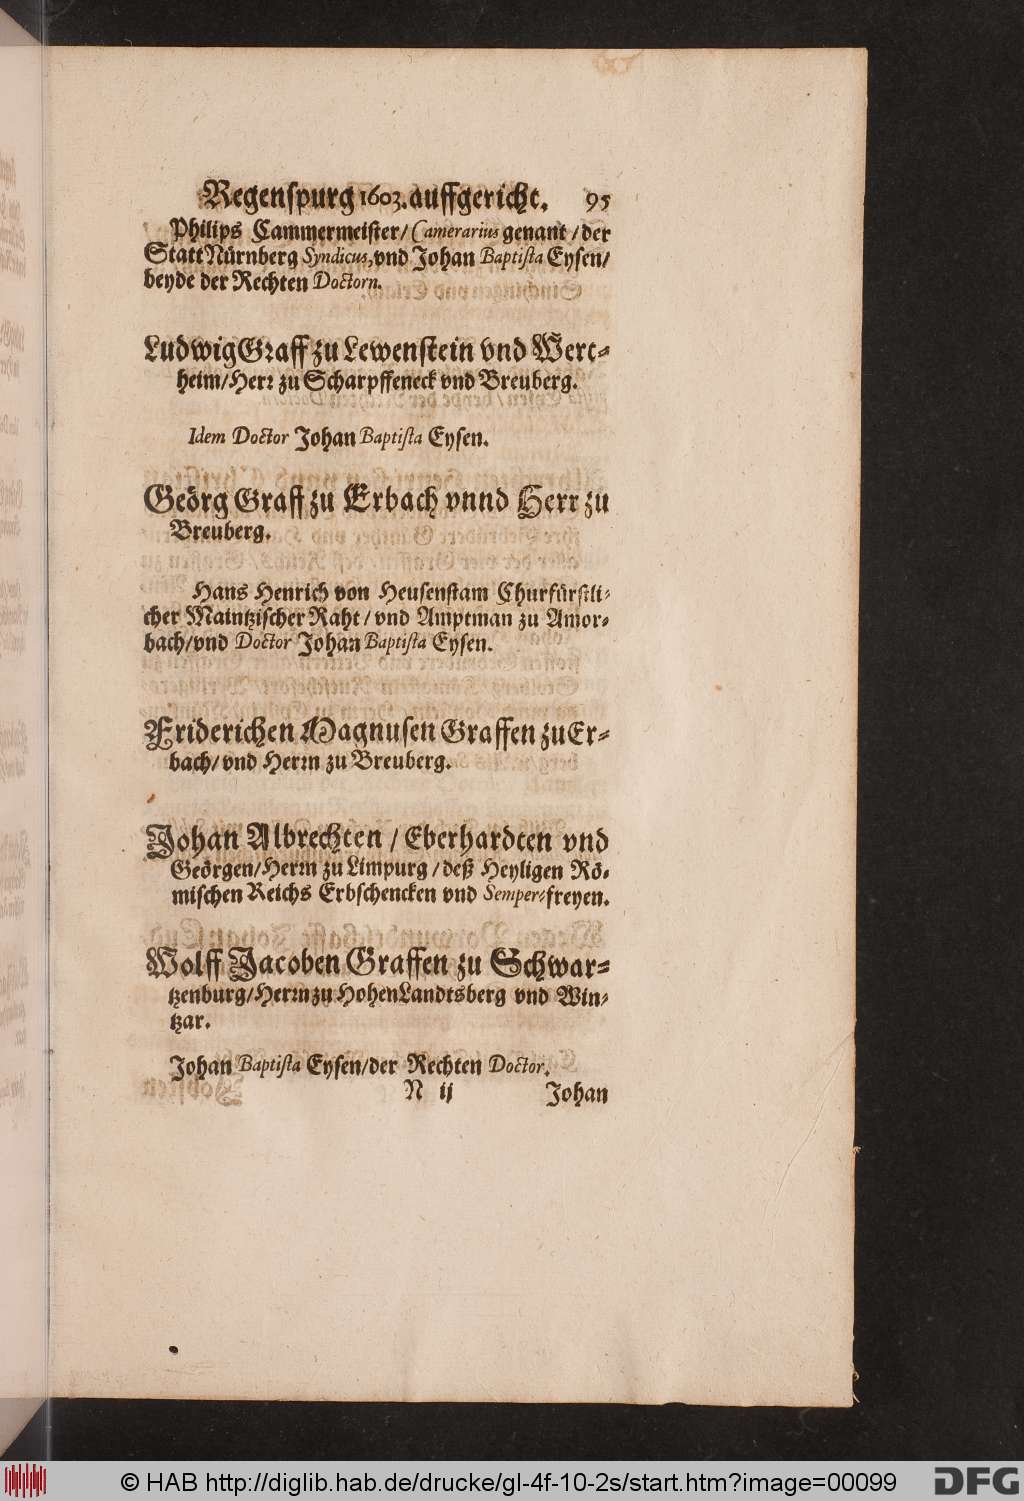 Regenspurg 1603. auffgericht. 95
Philips Cammermeister / Camerarius genant / der
Statt Nürnberg Syndicus, vnd Johan Baptista Eysen /
beyde der Rechten Doctorn.
Ludwig Graff zu Lewenstein vnd Wert-
heim / Herr zu Scharpffeneck vnd Breuberg.
Idem Doctor Johan Baptista Eysen.
Geörg Graff zu Erbach vnnd Herr zu
Breuberg.
Hans Henrich von Heusenstam Churfürstli-
cher Maintzischer Raht / vnd Amptman zu Amor-
bach / vnd Doctor Johan Baptista Eysen.
Friderichen Magnusen Graffen zu Er-
bach / vnd Herrn zu Breuberg.
Johan Albrechten / Eberhardten vnd
Geörgen / Herrn zu Limpurg / deß Heyligen Rö-
mischen Reichs Erbschencken vnd Semper-freyen.
Wolff Jacoben Graffen zu Schwar-
tzenburg / Herrn zu HohenLandtsberg vnd Win-
tzar.
Johan Baptista Eysen / der Rechten Doctor.
N ij Johan
© HAB http://diglib.hab.de/drucke/gl-4f-10-2s/start.htm?image=00099
DFG